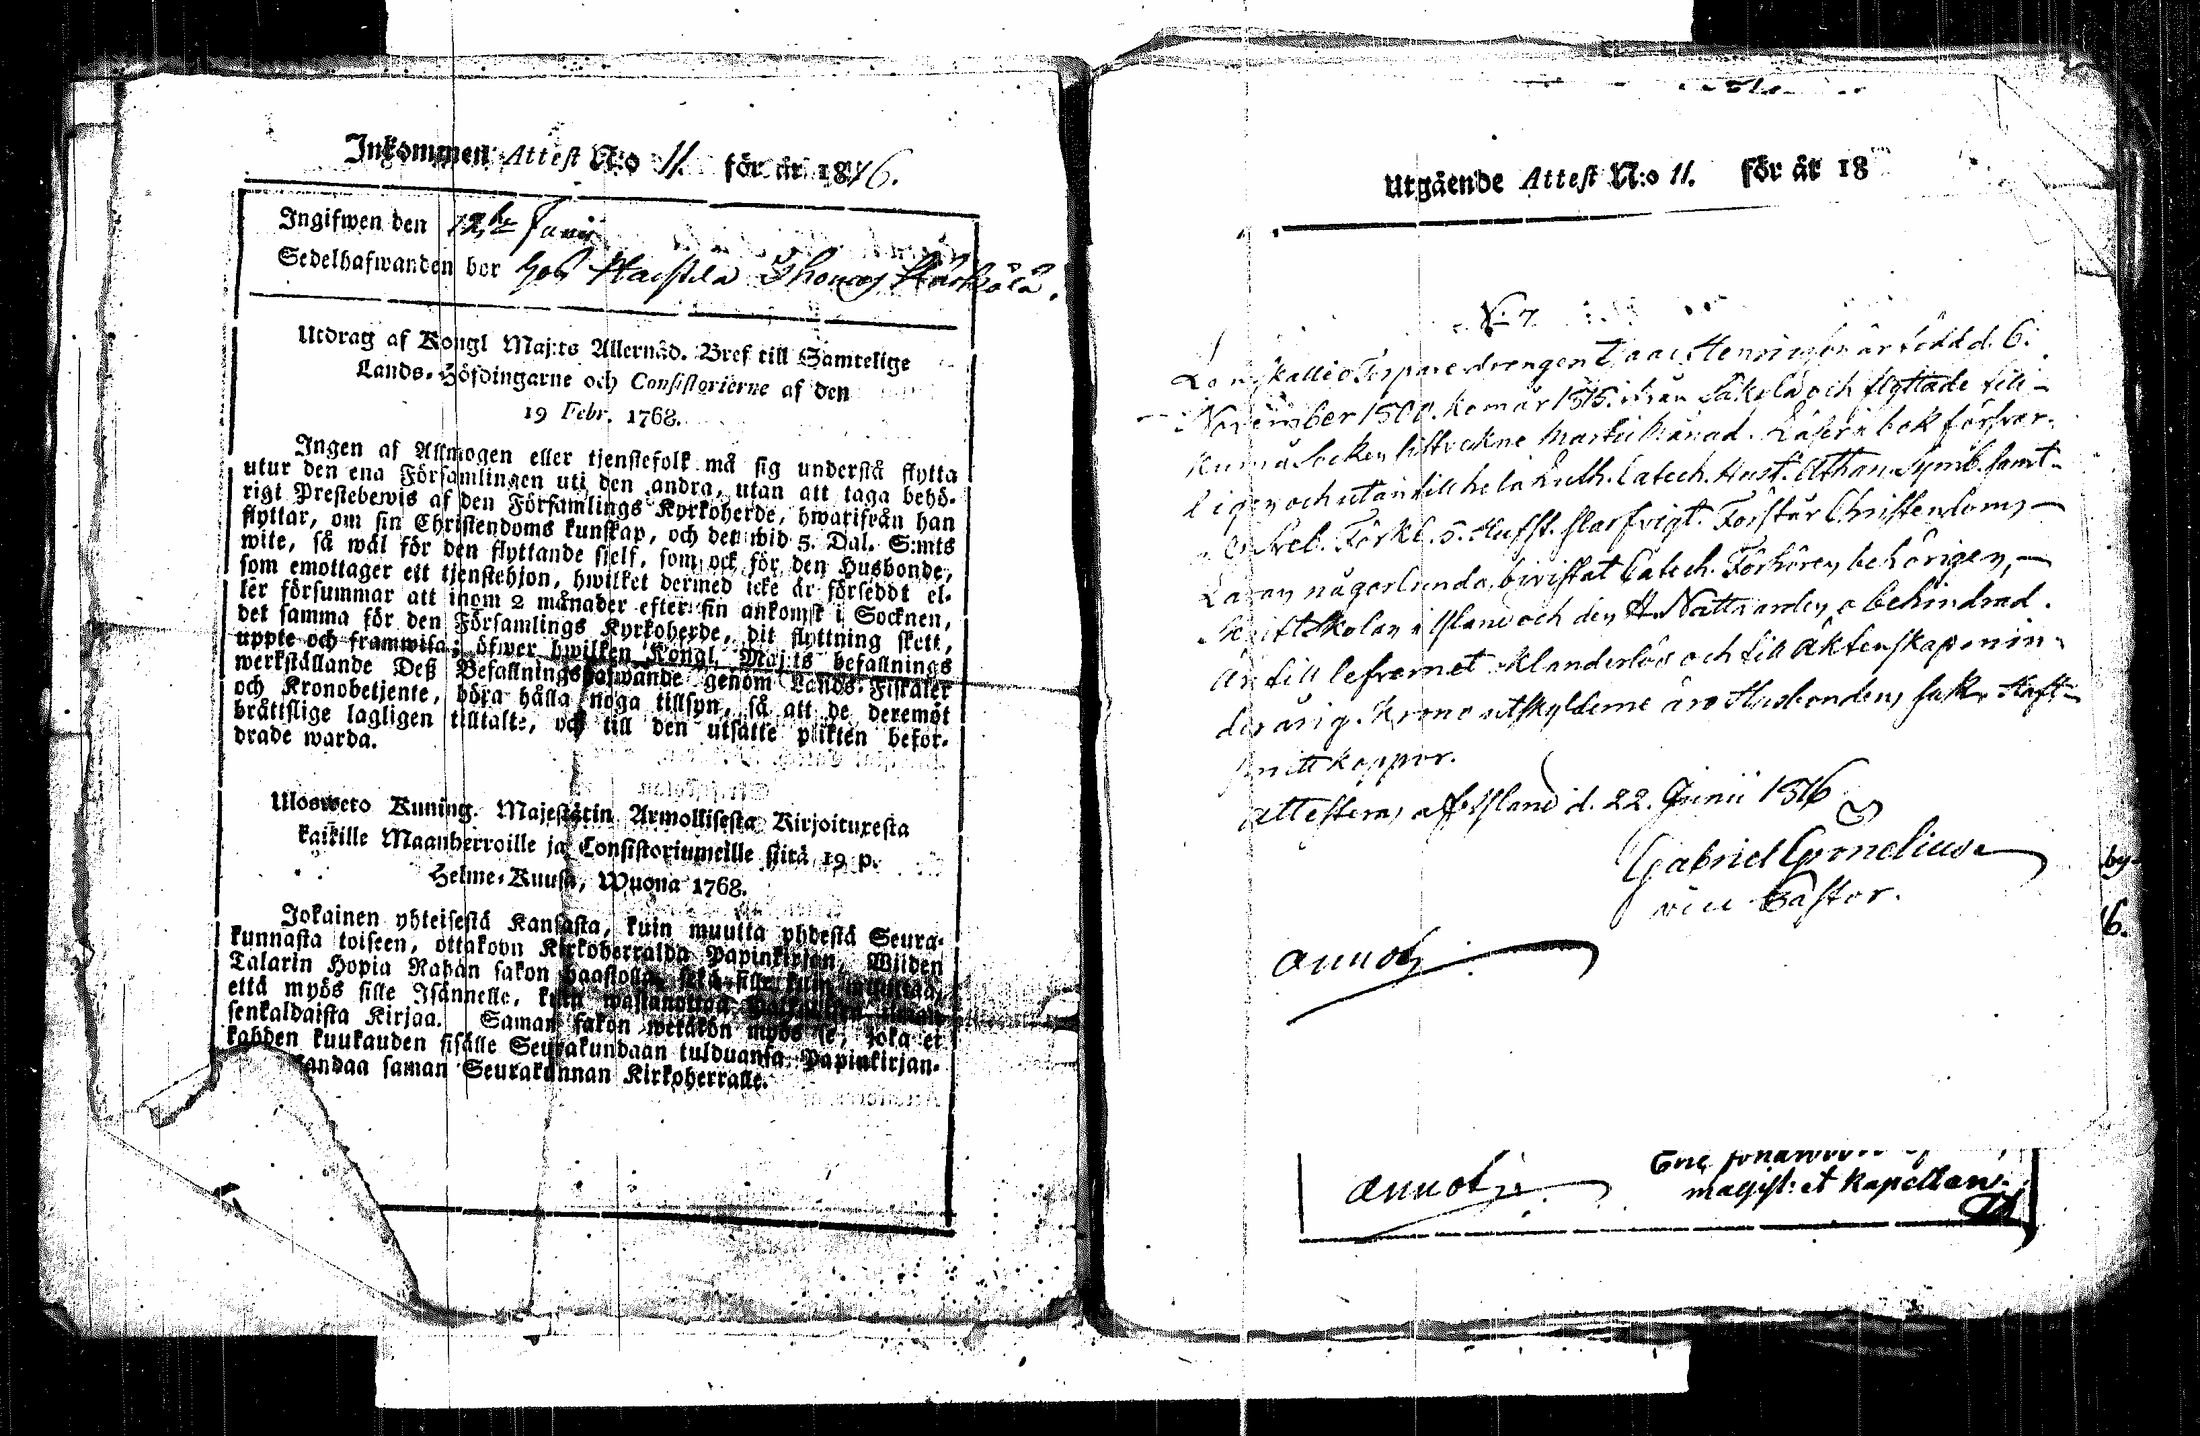 Inkommen Attest N:o 11. för år 1816.
Ingifwen den 12te Junii
Sedelhafwanden bor hos Thomas
Utdrag af Kongl Maj:ts Allernåd. Bref till Samtelige
Lands-Höfdingarne och Consistorierne af den
19 Febr. 1768.
Ingen af Allmogen eller tjenstefolk må sig understå flytta
utur den ena Församlingen uti den andra, utan att taga behö-
rigt Prestebewis af den Församlings Kyrkoherde, hwarifrån han
flyttar, om sin Christendoms kunskap, och det wid 5. Dal. S:mts
wite, så wäl för den flyttande sjelf, som ock för den Husbonde,
som emottager ett tjenstehjon, hwilket dermed icke är försedt el-
ler försummar att inom 2 månader efter sin ankomst i Socknen,
det samma för den Församlings Kyrkoherde, dit flyttning skett,
uppte och framwisa; öfwer hwilken Kongl. Maj:ts befallnings
werkställande Deß Befallningshafwande genom Lands-Fiskaler
och Kronobetjente, böra hålla noga tillsyn, så att de deremot
bråttslige lagligen tilltalte, och till den utsatte plikten befor-
drade warda.
Uloswero Kuning. Majestätin Armollisesta Kirjoituxesta
kaikille Maanherroille ja Consistoriumeille siitä 19 p.
Helme-Kuusa, Wuona 1768.
Jokainen yhteisestä Kansasta, kuin muutta yhdestä Seura-
kunnasta toiseen, ottakoon Kirkoherralda Papinkirjan, Wiiden
Talarin Hopia Rahan sakon haastolla, sekä sille kuin muuttaa,
että myös sille Isännelle, kuin wastanottaa ilman
senkaldaista Kirjaa. Saman sakon wetäkön myös se, joka ei
kahden kuukauden sisälle Seurakundaan tulduansa, Papinkirjan-
andaa saman Seurakunnan Kirkoherralle.
Utgående Attest N:o 11. för år 18
N:o 7.
drengen Henricsson är född d. 6.
November 1800. kom år 1815. ifrån Säkylä och flyttade till
Socken sistvekne Martii Månad. Läser i bok försvar-
ligen och utantill hela Luth. Catech. Hust. Athan. Symb. samt
Förkl. o. Hufst. slarfvigt. Förstår Christendoms
Läran någorlunda, bivistat Catech. Förhören behörigen,
Skriftskolan i och den H. Nattvarden obehindrad.
Är till lefvernet oklanderlös och till äktenskap omin-
derårig. Krono utskylderne äro Husbondens sak. Haft
koppor.
Attesteras af d. 22. Junii 1816
Gabriel Cornelius
vice Pastor.
annot.
by-
16.
annot.
magist: et Kapellan.